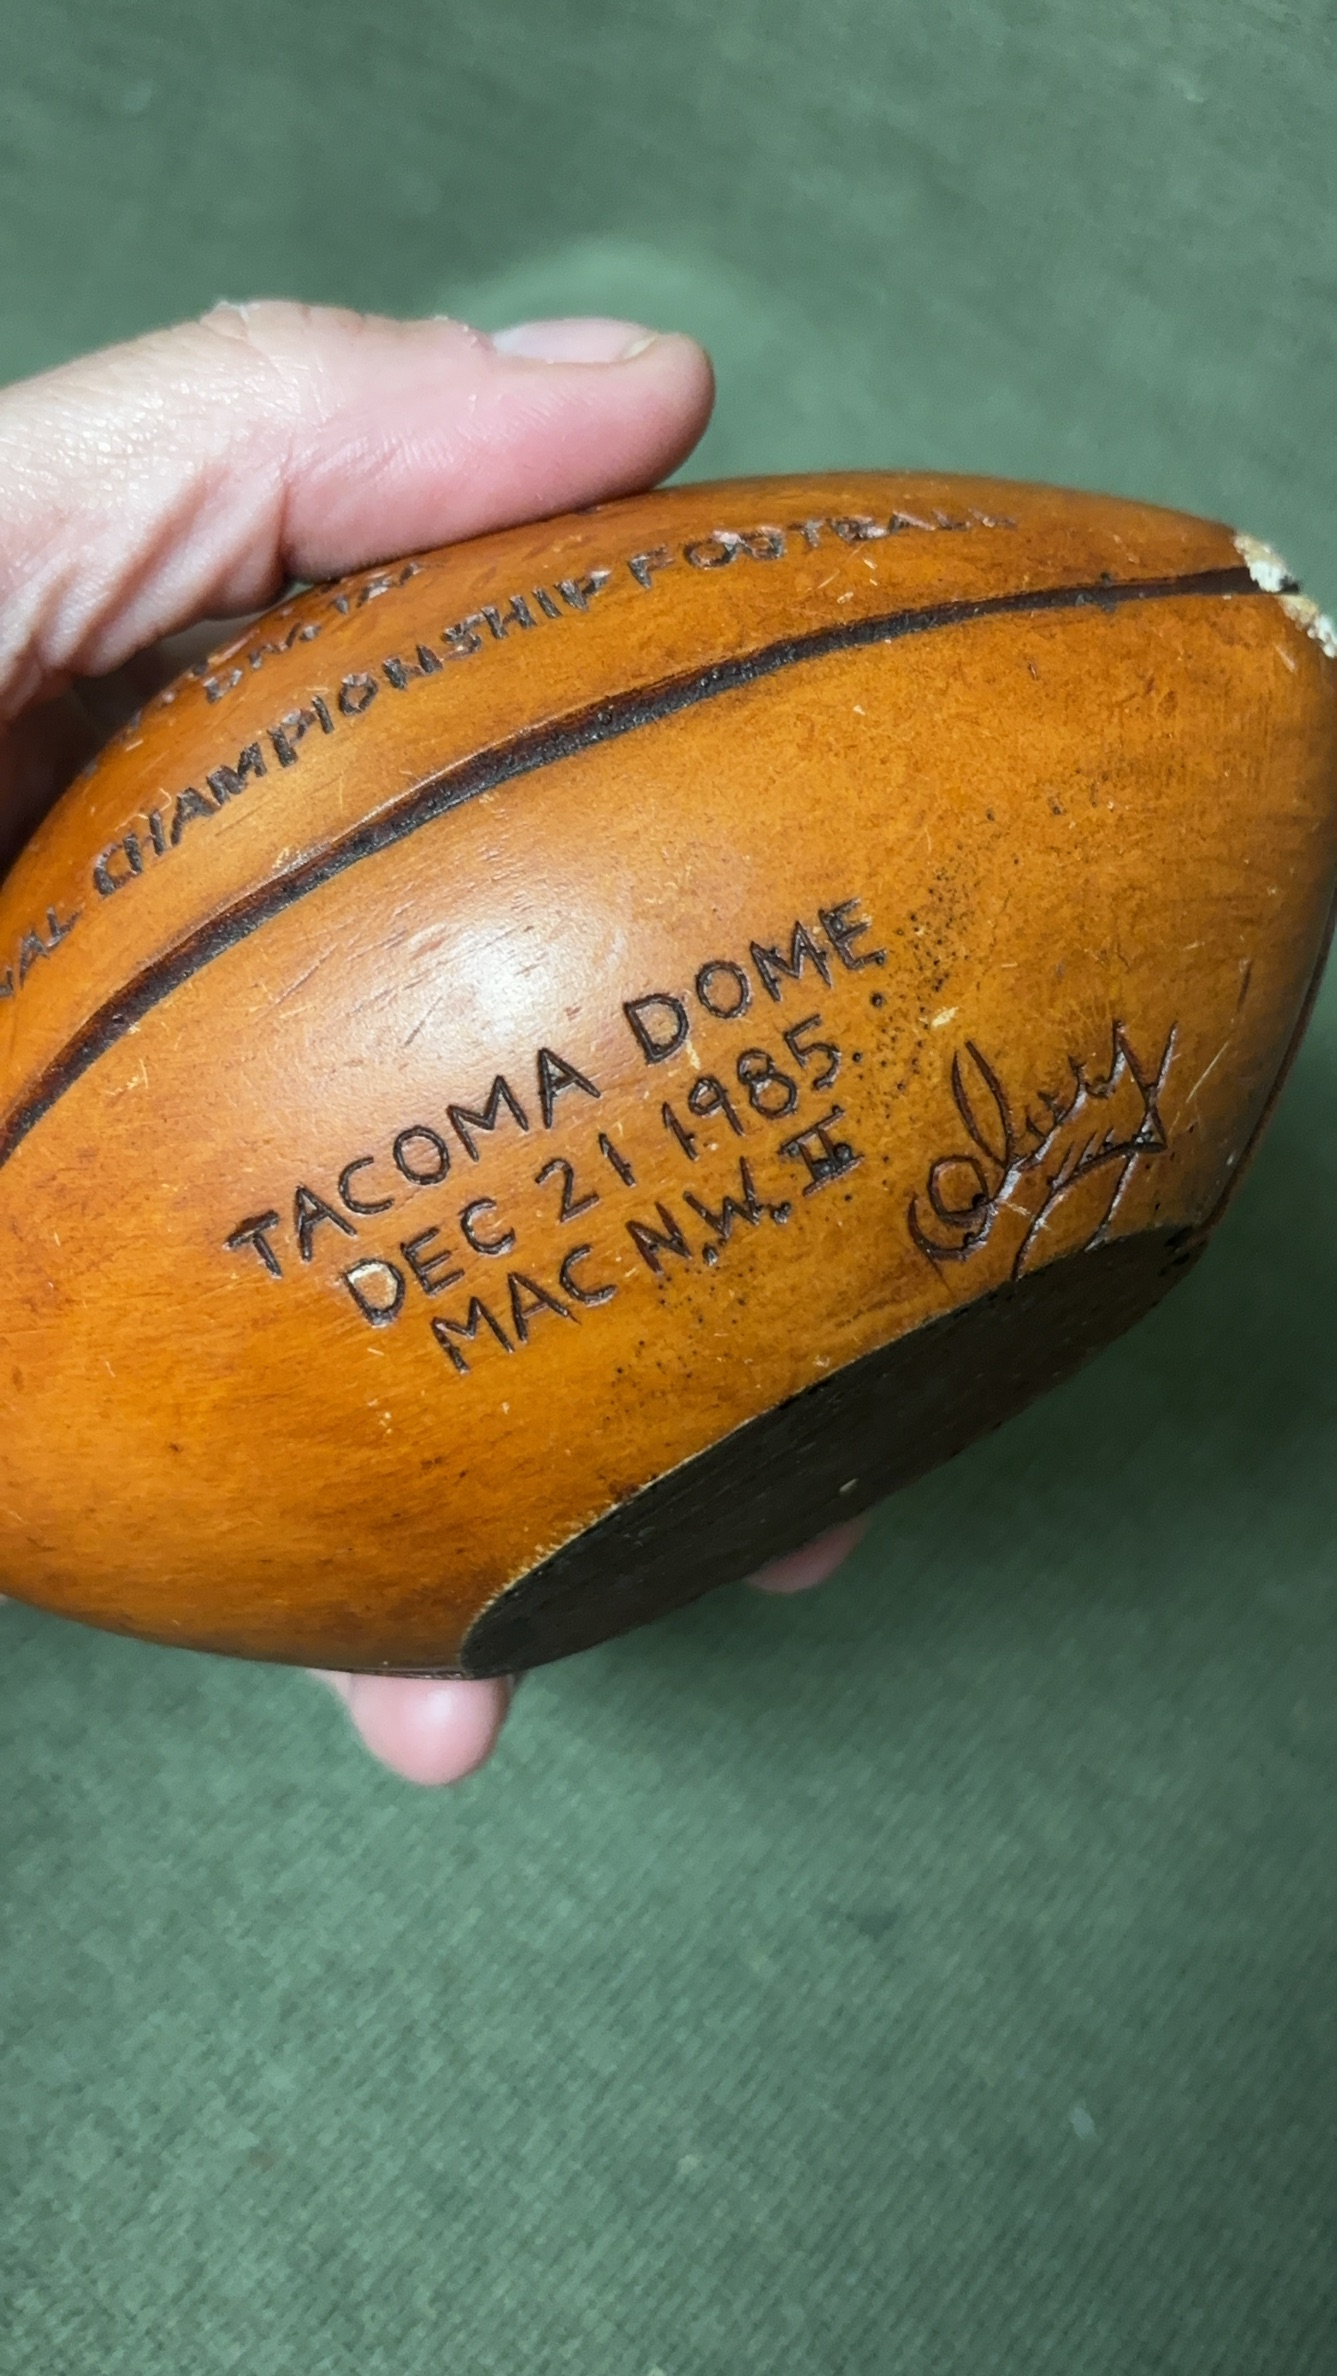 CHAMPIONSHIP FOOTBALL
TACOMA DOME
DEC 21 1985
MAC N.W. II